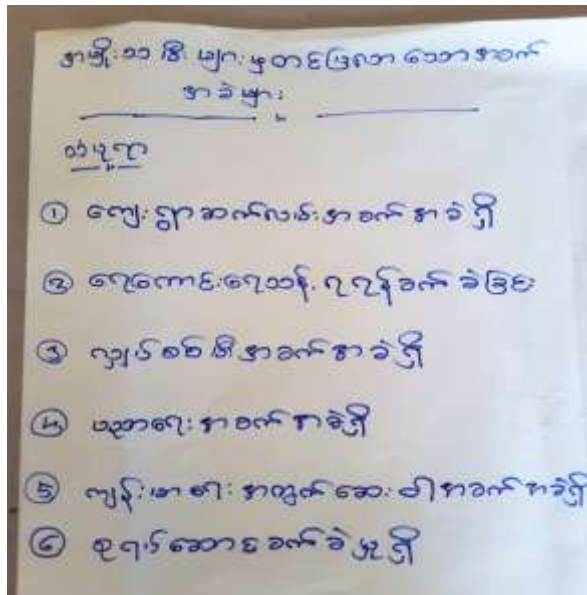 အမျိုးသမီးများမှတင်ပြလာသောအခက်
အခဲများ
ယခု
① ကျေးရွာဆက်လမ်းအခက်အခဲရှိ
② ရေကောင်းရေသန့်ရရန်ခက်ခဲခြင်း
③ လျှပ်စစ်မီးအခက်အခဲရှိ
④ ပညာရေးအခက်အခဲရှိ
⑤ ကျန်းမာရေးအတွက်ဆေးဝါးအခက်အခဲရှိ
⑥ ခက်ခဲမှုရှိ